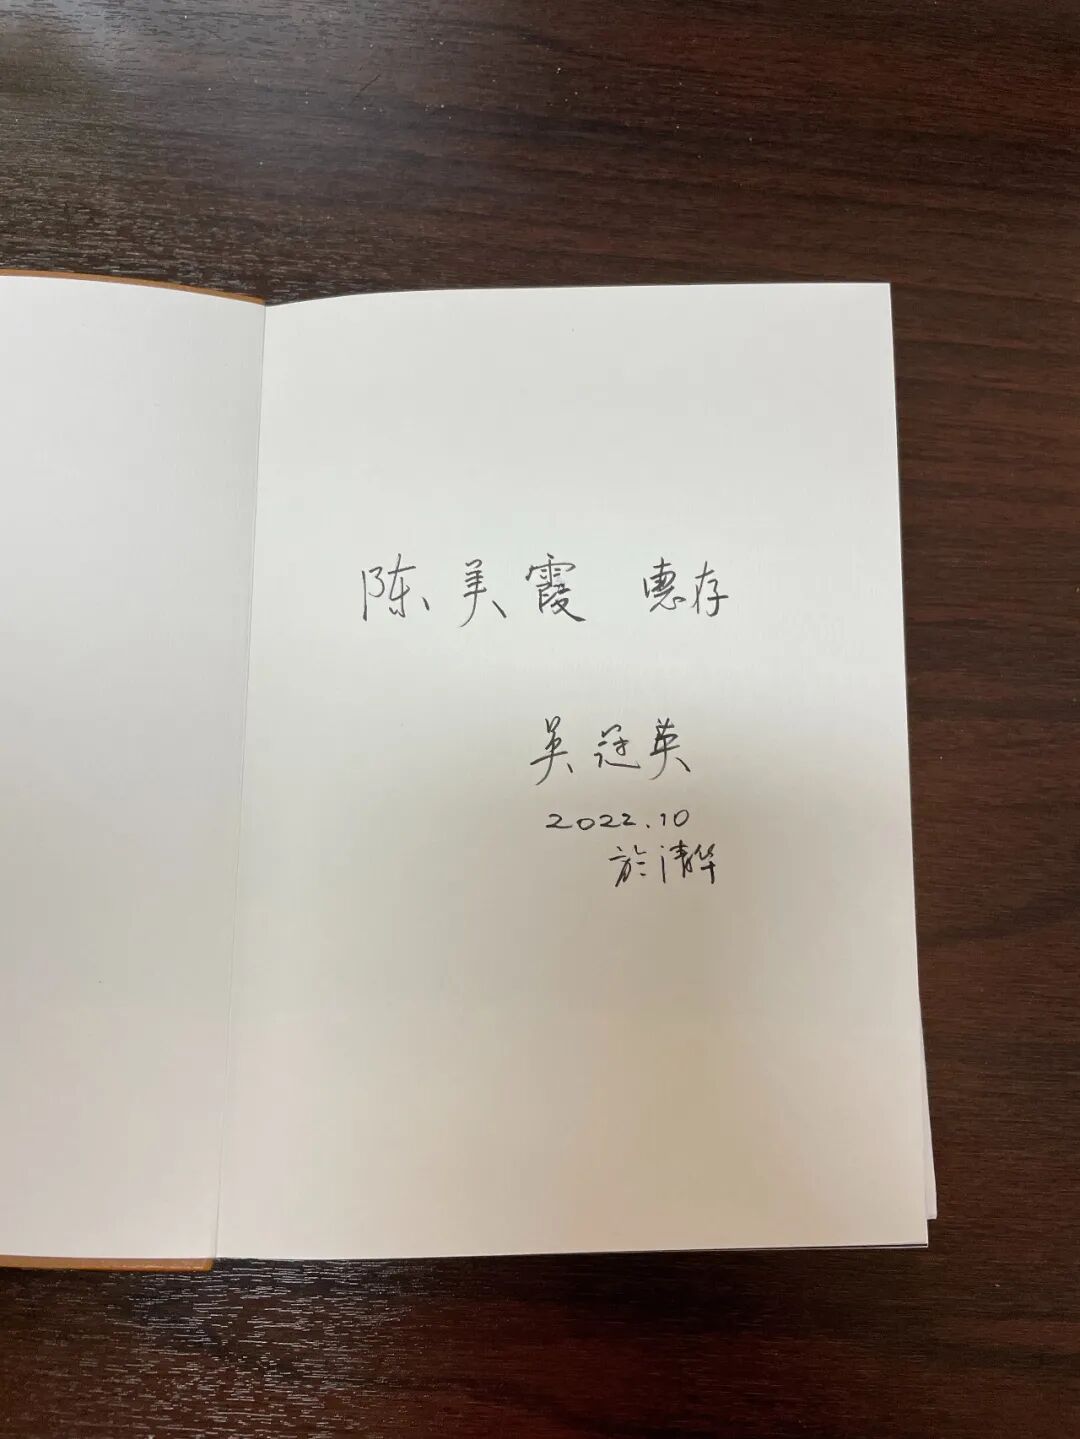 陈美霞 惠存
吴冠英
2022.10
於清华